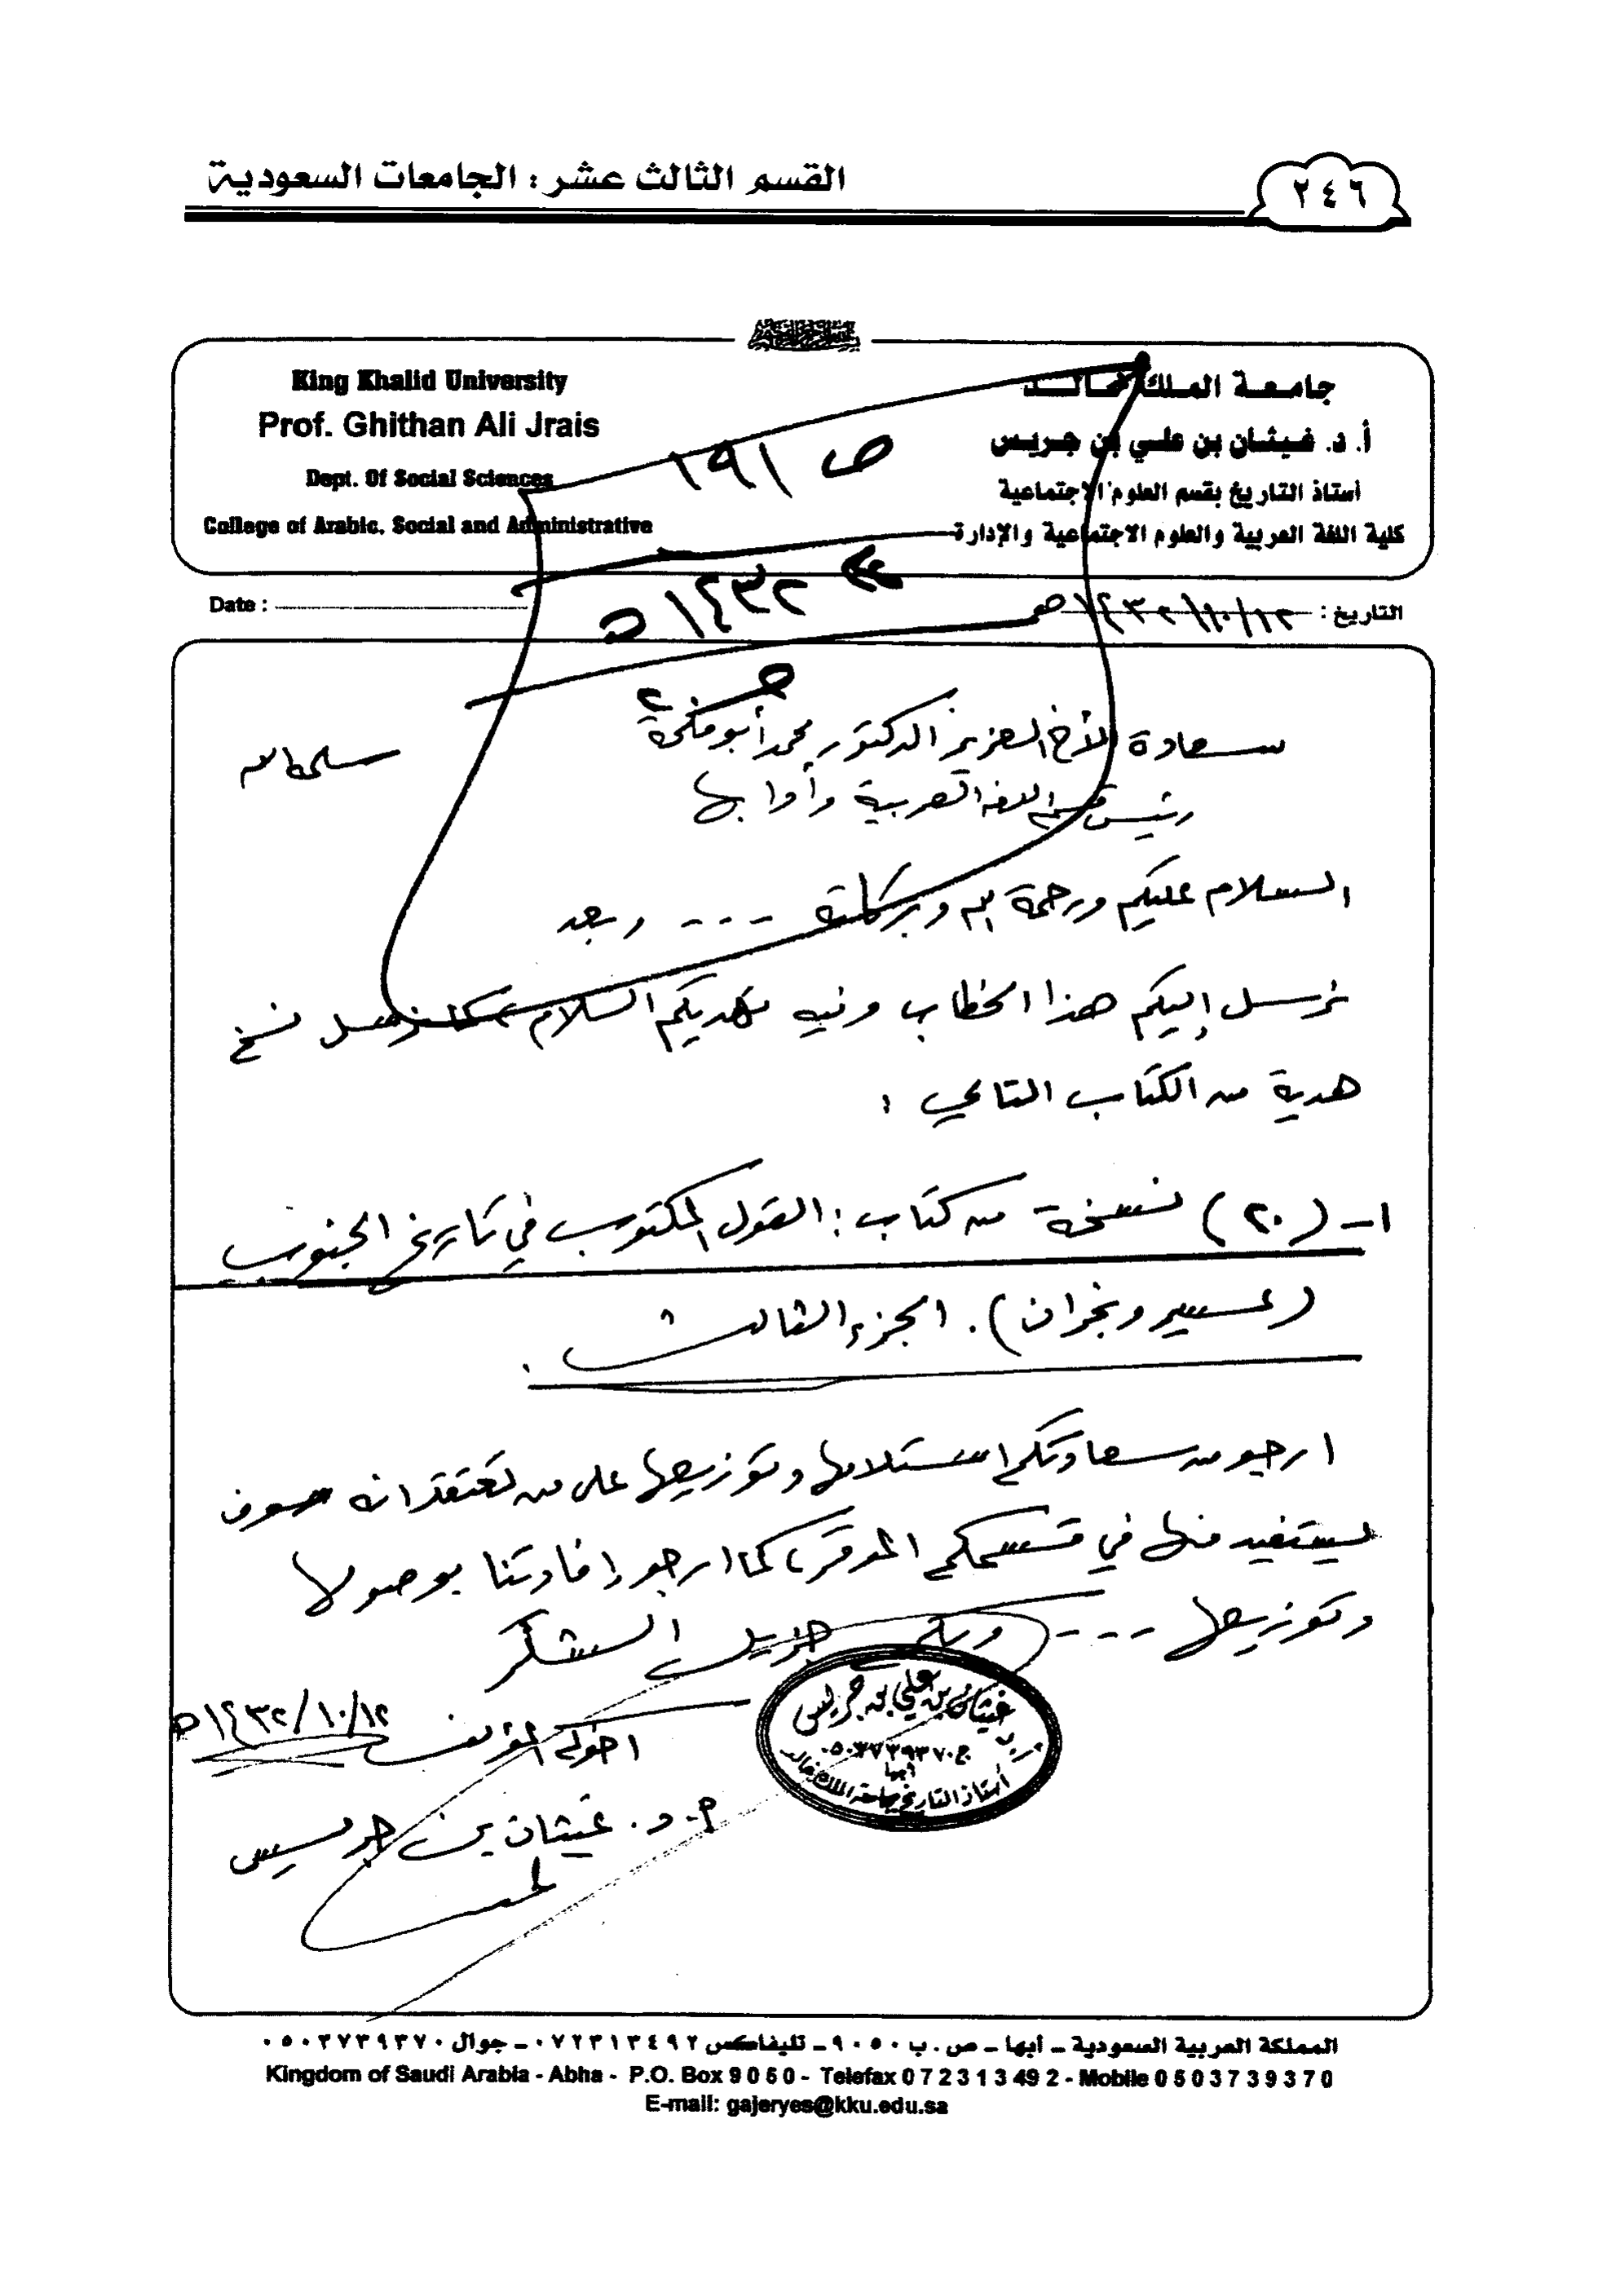 القسم الثالث عشر : الجامعات السعودية
٢٤٦
King Khalid University
Prof. Ghithan Ali Jrais
Dept. Of Social Sciences
College of Arabic. Social and Administrative
جامعة الملك خالد
أ. د. غيثان بن علي بن جريس
أستاذ التاريخ بقسم العلوم الاجتماعية
كلية اللغة العربية والعلوم الاجتماعية والإدارة
ص ١٩١
١٤٣٢ هـ
Date :
التاريخ : ١٤٣٢/١٠/١٢هـ
سعادة الأخ العزيز الدكتور محمد أبو ملحة سلمه الله
رئيس قسم اللغة العربية وآدابها
السلام عليكم ورحمة الله وبركاته --- وبعد
نرسل إليكم هذا الخطاب وفيه نهديكم السلام، كما نرسل نسخ
هدية من الكتاب التالي :
١- (٢٠) نسخة من كتاب : القول المكتوب في تاريخ الجنوب
(عسير ونجران). الجزء الثالث .
ارجو من سعادتكم استلامها وتوزيعها على من تعتقد انه سوف
يستفيد منها في قسمكم الموقر، كما ارجو إفادتنا بوصولها
وتوزيعها --- ولكم جزيل الشكر
اخوكم المؤلف ١٤٣٢/١٠/١٢هـ
أ. د. غيثان بن جريس
غيثان بن علي بن جريس
ج ٠٥٠٣٧٣٩٣٧٠
أبها
أستاذ التاريخ بجامعة الملك خالد
المملكة العربية السعودية ـ أبها ـ ص . ب ٩٠٥٠ ـ تليفاكس ٠٧٢٣١٣٤٩٢ ـ جوال ٠٥٠٣٧٣٩٣٧٠
Kingdom of Saudi Arabia - Abha - P.O. Box 9 0 5 0 - Telefax 0 7 2 3 1 3 49 2 - Mobile 0 5 0 3 7 3 9 3 7 0
E-mail: gajeryes@kku.edu.sa